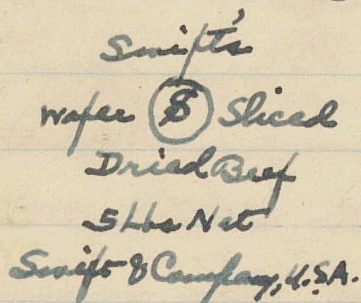 Swift's
Wafer S Sliced
Dried Beef
5 Lbs Net
Swift & Company, U.S.A.